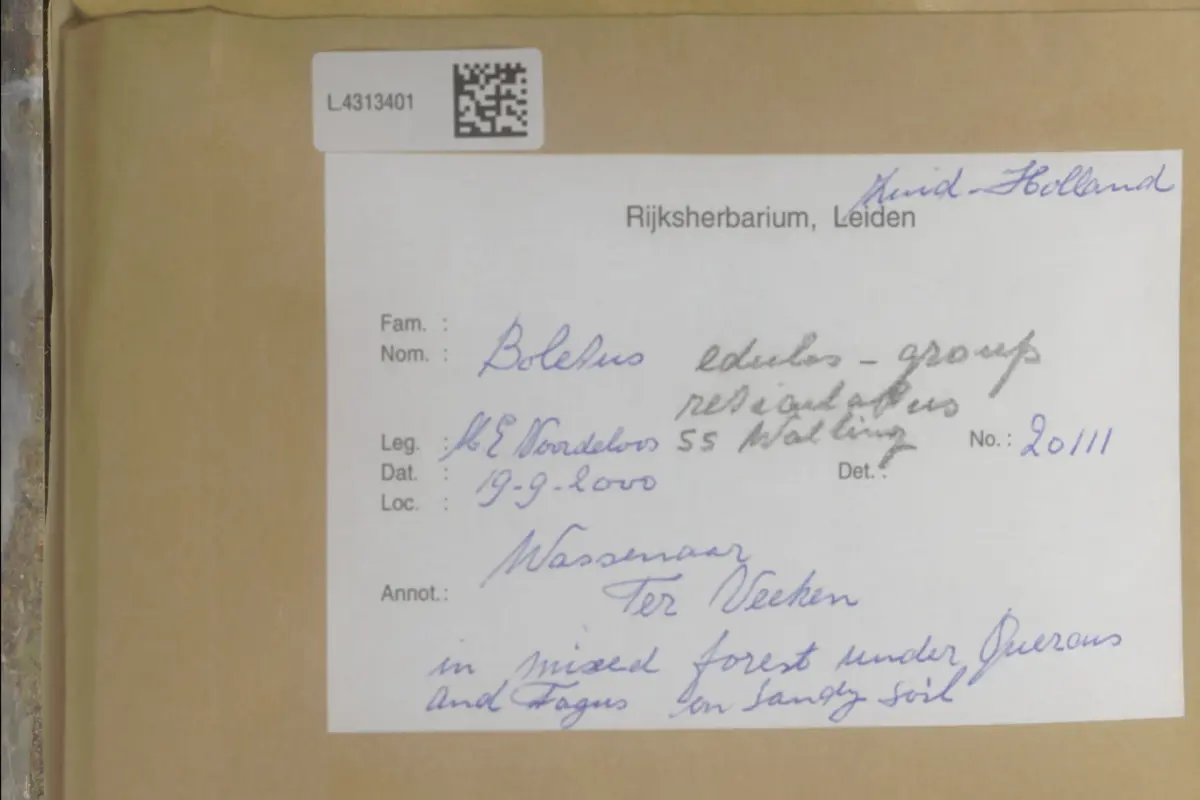 L.4313401
Zuid-Holland
Rijksherbarium, Leiden
Fam. :
Nom. : Boletus edulis - group
reticulatus
Leg. : M E Noordeloos ss Watling No.: 20111
Dat. : 19-9-2000 Det. :
Loc. :
Wassenaar
Annot.: Ter Veeken
in mixed forest under Quercus
and Fagus on sandy soil